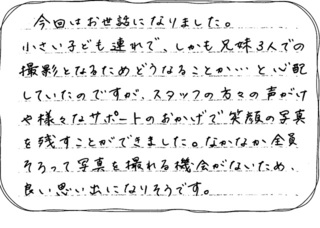 今回はお世話になりました。
小さい子ども連れで、しかも兄妹3人での
撮影となるためどうなることか…と心配
していたのですが、スタッフの方々の声がけ
や様々なサポートのおかげで笑顔の写真
を残すことができました。なかなか全員
そろって写真を撮れる機会がないため、
良い思い出になりそうです。